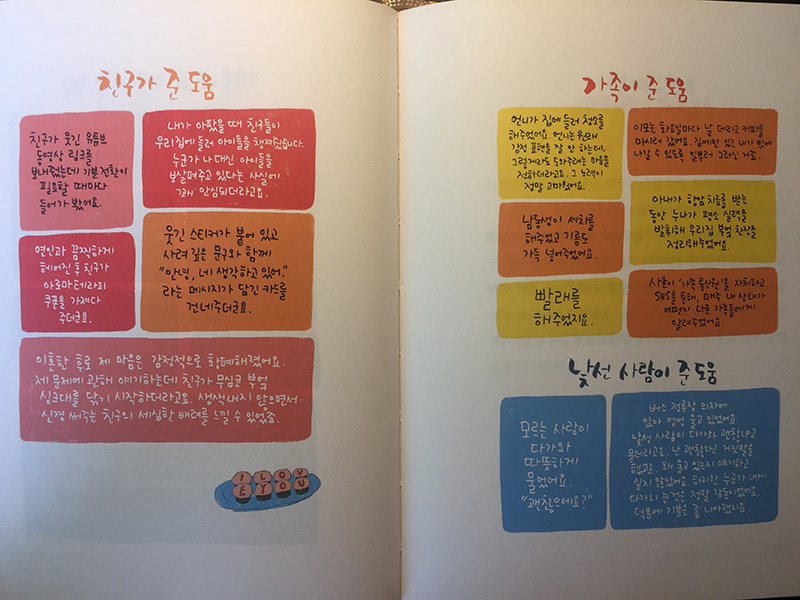 친구가 준 도움
친구가 웃긴 유튜브
동영상 링크를
보내줬는데 기분전환이
필요할 때마다
들어가 봤어요.
내가 아팠을 때 친구들이
우리집에 들러 아이들을 챙겨줬습니다.
누군가 나 대신 아이들을
보살펴주고 있다는 사실에
그래 안심되더라고요.
연인과 끔찍하게
헤어진 후 친구가
아로마테라피
쿠폰을 가져다
주더군요.
웃긴 스티커가 붙어 있고
사려 깊은 문구와 함께
"안녕, 네 생각하고 있어."
라는 메시지가 담긴 카드를
건네주더군요.
이혼한 후로 제 마음은 감정적으로 황폐해졌어요.
제 문제에 관해 얘기하는데 친구가 무심코 부엌
싱크대를 닦기 시작하더라고요. 생색내지 않으면서
신경 써주는 친구의 세심한 배려를 느낄 수 있었죠.
I LOV
E YOU
가족이 준 도움
언니가 집에 들러 청소를
해주었어요. 언니는 원래
감정 표현을 잘 안 하는데,
그렇게라도 도와주려는 마음을
전하더라고요. 그 노력이
정말 고마웠어요.
이모는 화요일마다 날 데리고 커피를
마시러 갔어요. 집에만 있는 내가 밖에
나갈 수 있도록 일부러 그러신 거죠.
남동생이 세차를
해주었고 기름도
가득 넣어주었어요.
아내가 항암 치료를 받는
동안 누나가 평소 실력을
발휘해 우리집 부엌 찬장을
정리해주었어요.
빨래를
해주었지요.
사촌이 '가족 통신원'을 자처하고
SNS를 통해, 매주 내 상태가
어떤지 다른 가족들에게
알려주었어요.
낯선 사람이 준 도움
모르는 사람이
다가와
따뜻하게
물었어요.
"괜찮으세요?"
버스 정류장 의자에
앉아 엉엉 울고 있었어요.
낯선 사람이 다가와 괜찮냐고
묻더라고요. 난 괜찮다고 거짓말을
했고요. 왜 울고 있는지 얘기하고
싶지 않았어요. 하지만 누군가 내게
다가와 준 것은 정말 감동이었어요.
덕분에 기분은 좀 나아졌지요.